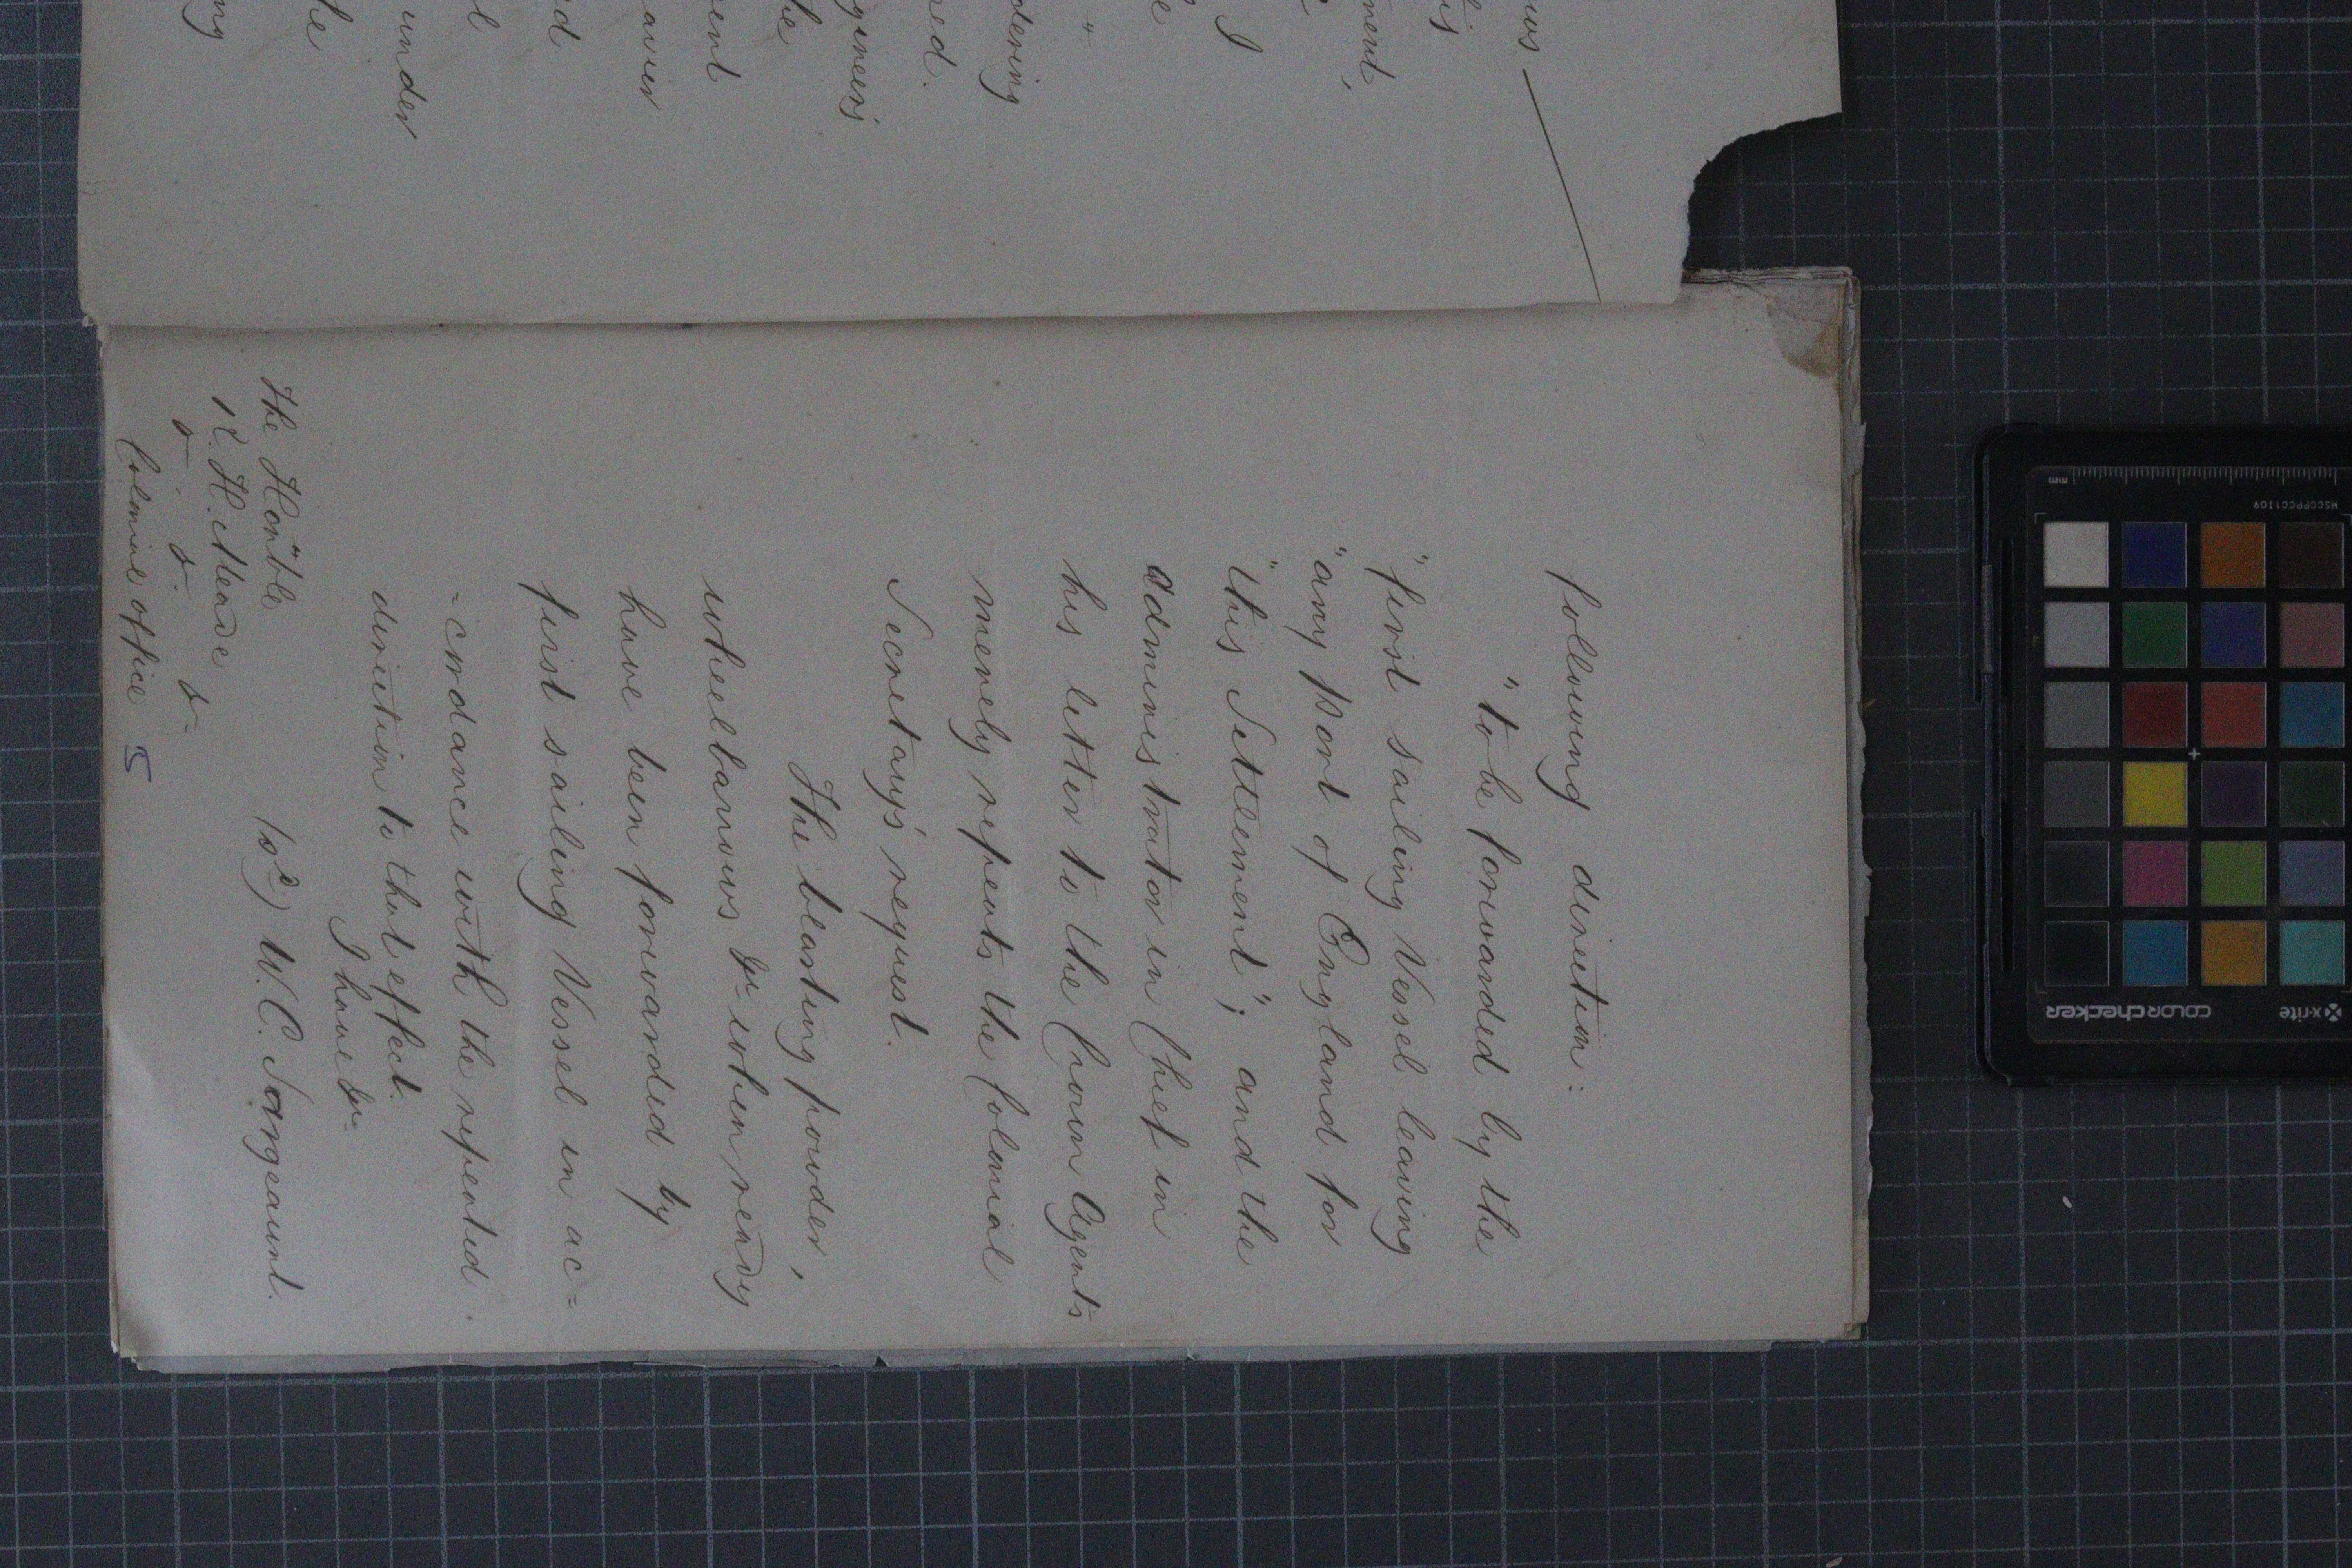 following direction:
"to be forwarded by the
"first sailing Vessel leaving
"any Port of England for
"this Settlement"; and the
Administrator in Chief in
his letter to the Crown Agents
merely repeats the Colonial
Secretary's request.
The blasting powder,
wheelbarrows &c when ready
have been forwarded by
first sailing Vessel in ac=
-cordance with the repeated
direction to that effect.
I have &c
(sd) W. C. Sargeaunt.
The Hon"ble
R. H. Meade
&c. &c. &c
Colonial Office 5
under
dering
gineers
ment,
x-rite
COLORchecker
MSCCPPCC1109
mm